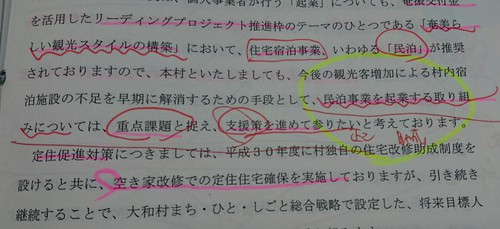 個人事業者が行う「起業」についても、奄振交付金
を活用したリーディングプロジェクト推進枠のテーマのひとつである「奄美ら
しい観光スタイルの構築」において、住宅宿泊事業、いわゆる「民泊」が推奨
されておりますので、本村といたしましても、今後の観光客増加による村内宿
泊施設の不足を早期に解消するための手段として、民泊事業を起業する取り組
みについては、重点課題と捉え、支援策を進めて参りたいと考えております。
定住促進対策につきましては、平成30年度に村独自の住宅改修助成制度を
設けると共に、空き家改修での定住住宅確保を実施しておりますが、引き続き
継続することで、大和村まち・ひと・しごと総合戦略で設定した、将来目標人